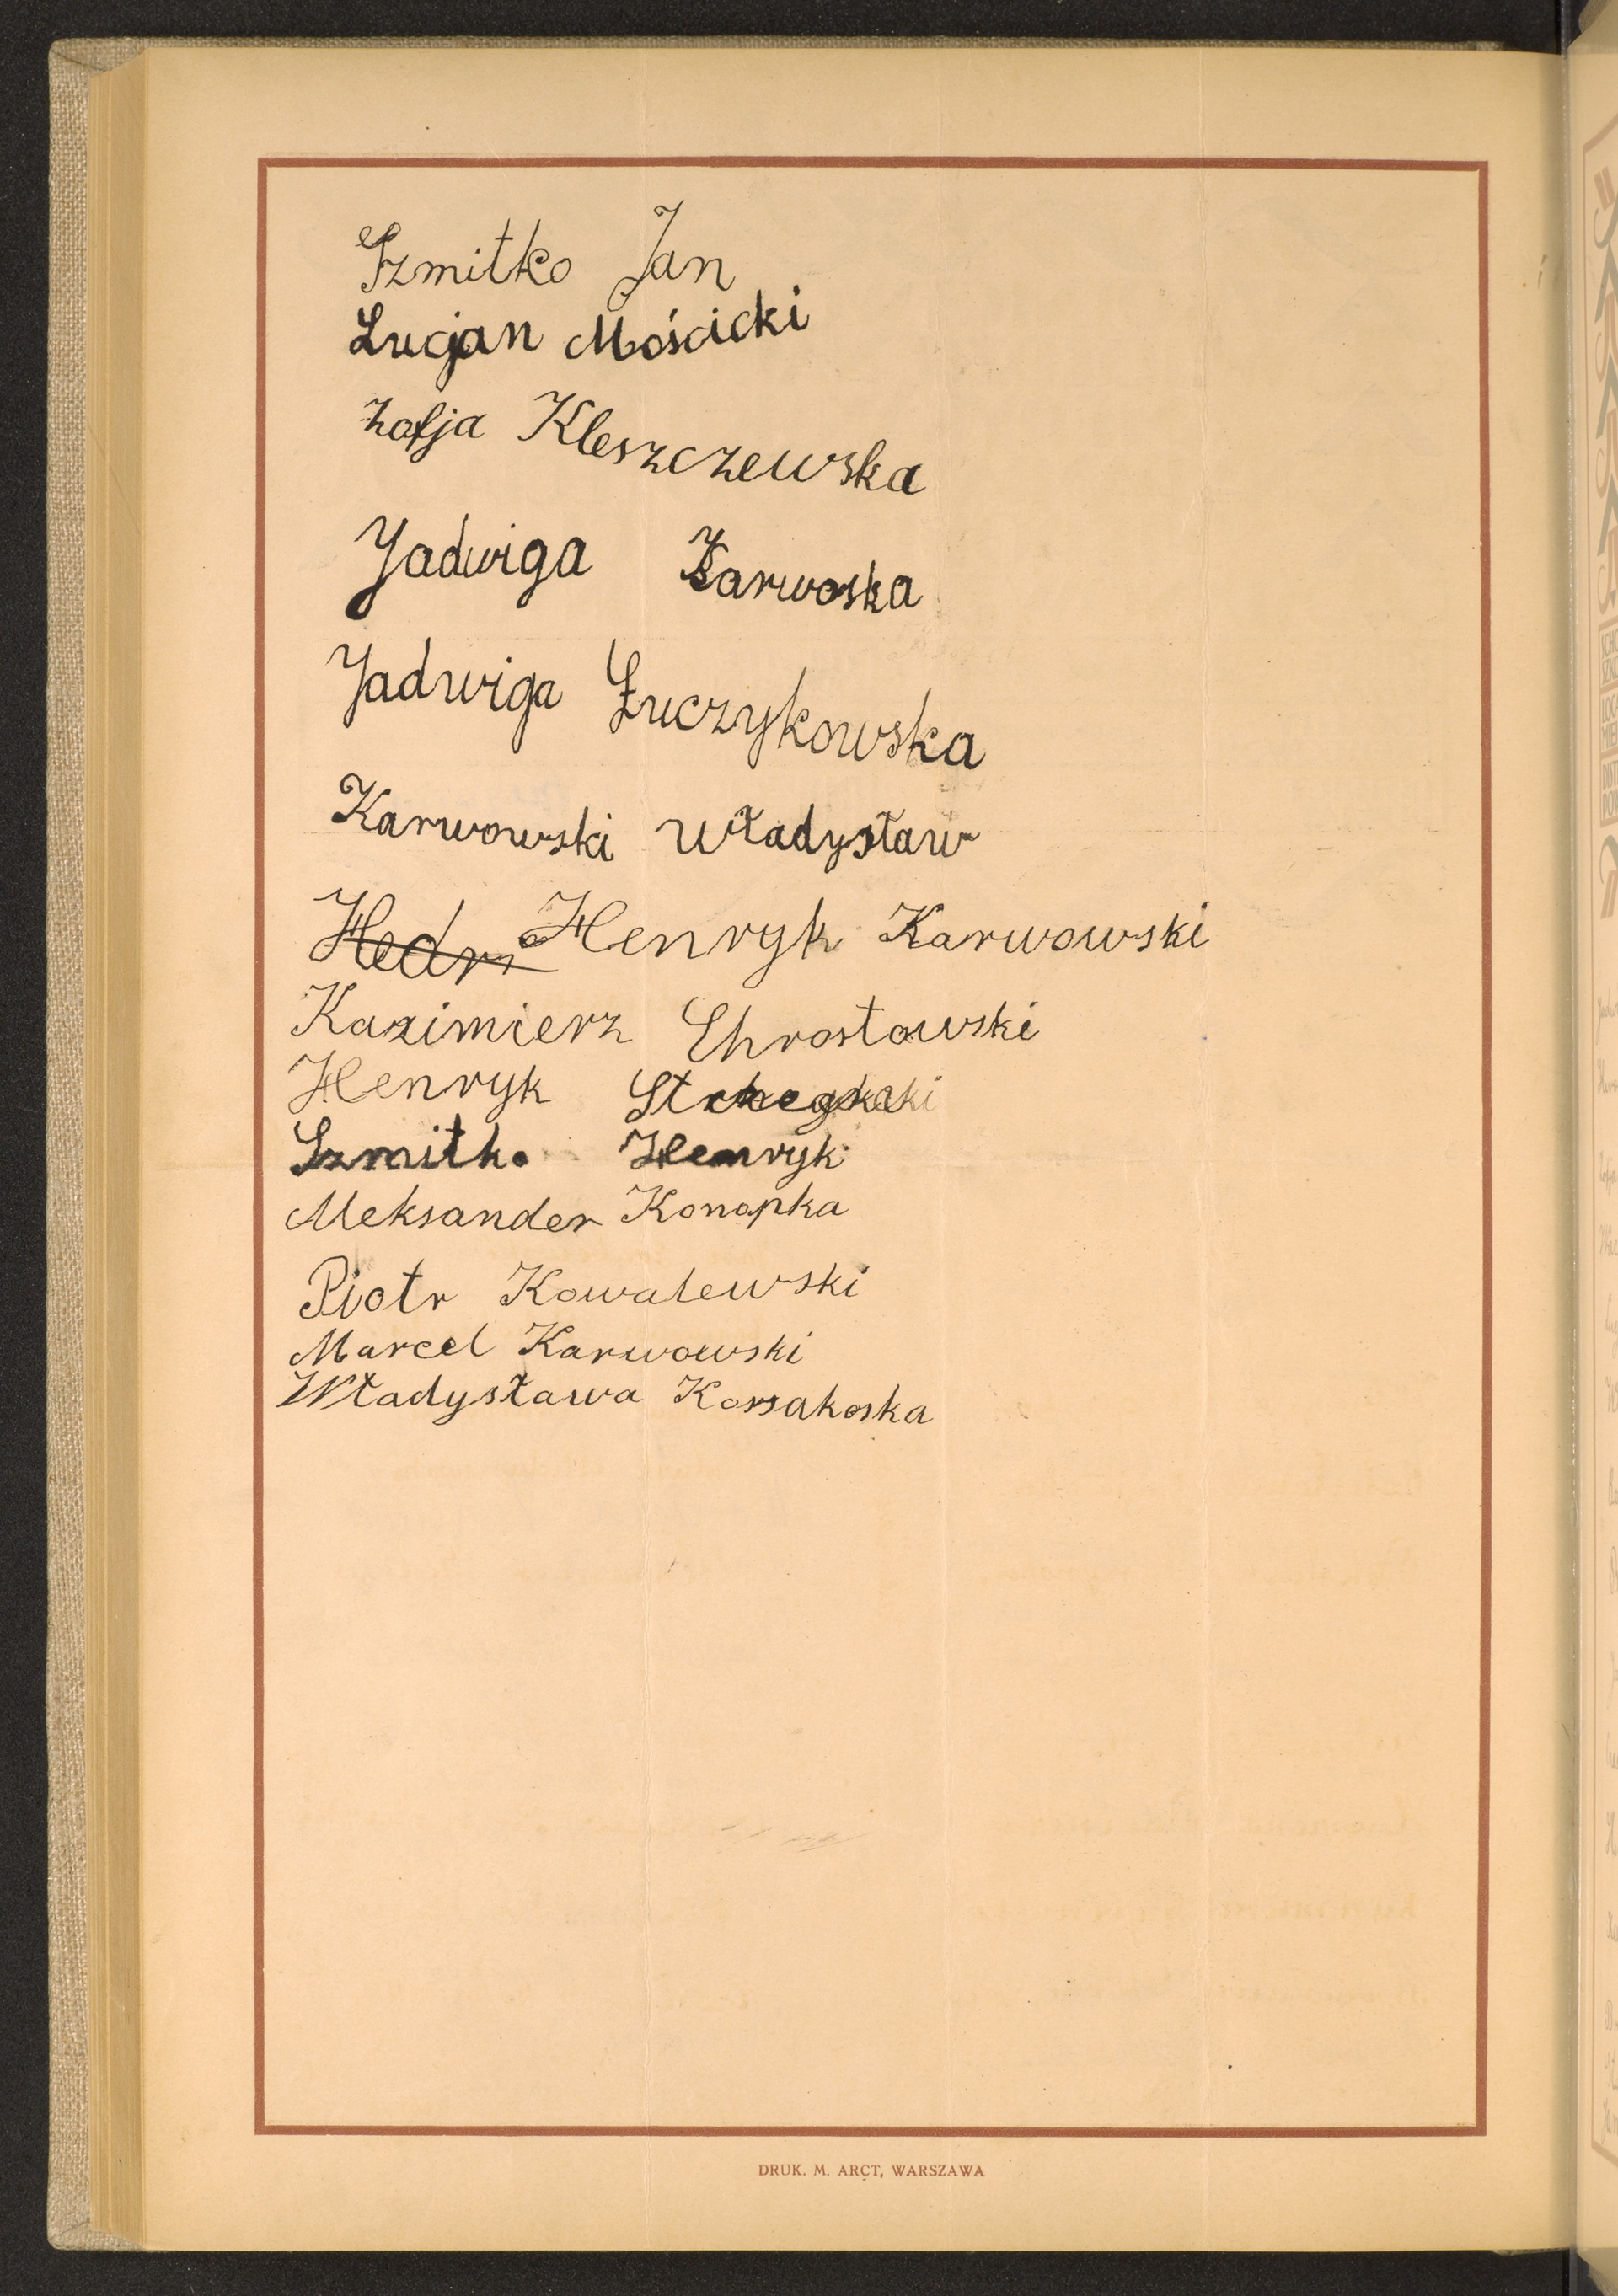 Szmitko Jan
Lucjan Mościcki
Zofja Kleszczewska
Jadwiga Karwoska
Jadwiga Łuczykowska
Karwowski Władysław
Hedri Henryk Karwowski
Kazimierz Chrostowski
Henryk
Szmitko Henryk
Aleksander Konopka
Piotr Kowalewski
Marcel Karwowski
Władysława Korsakoska
DRUK. M. ARCT, WARSZAWA